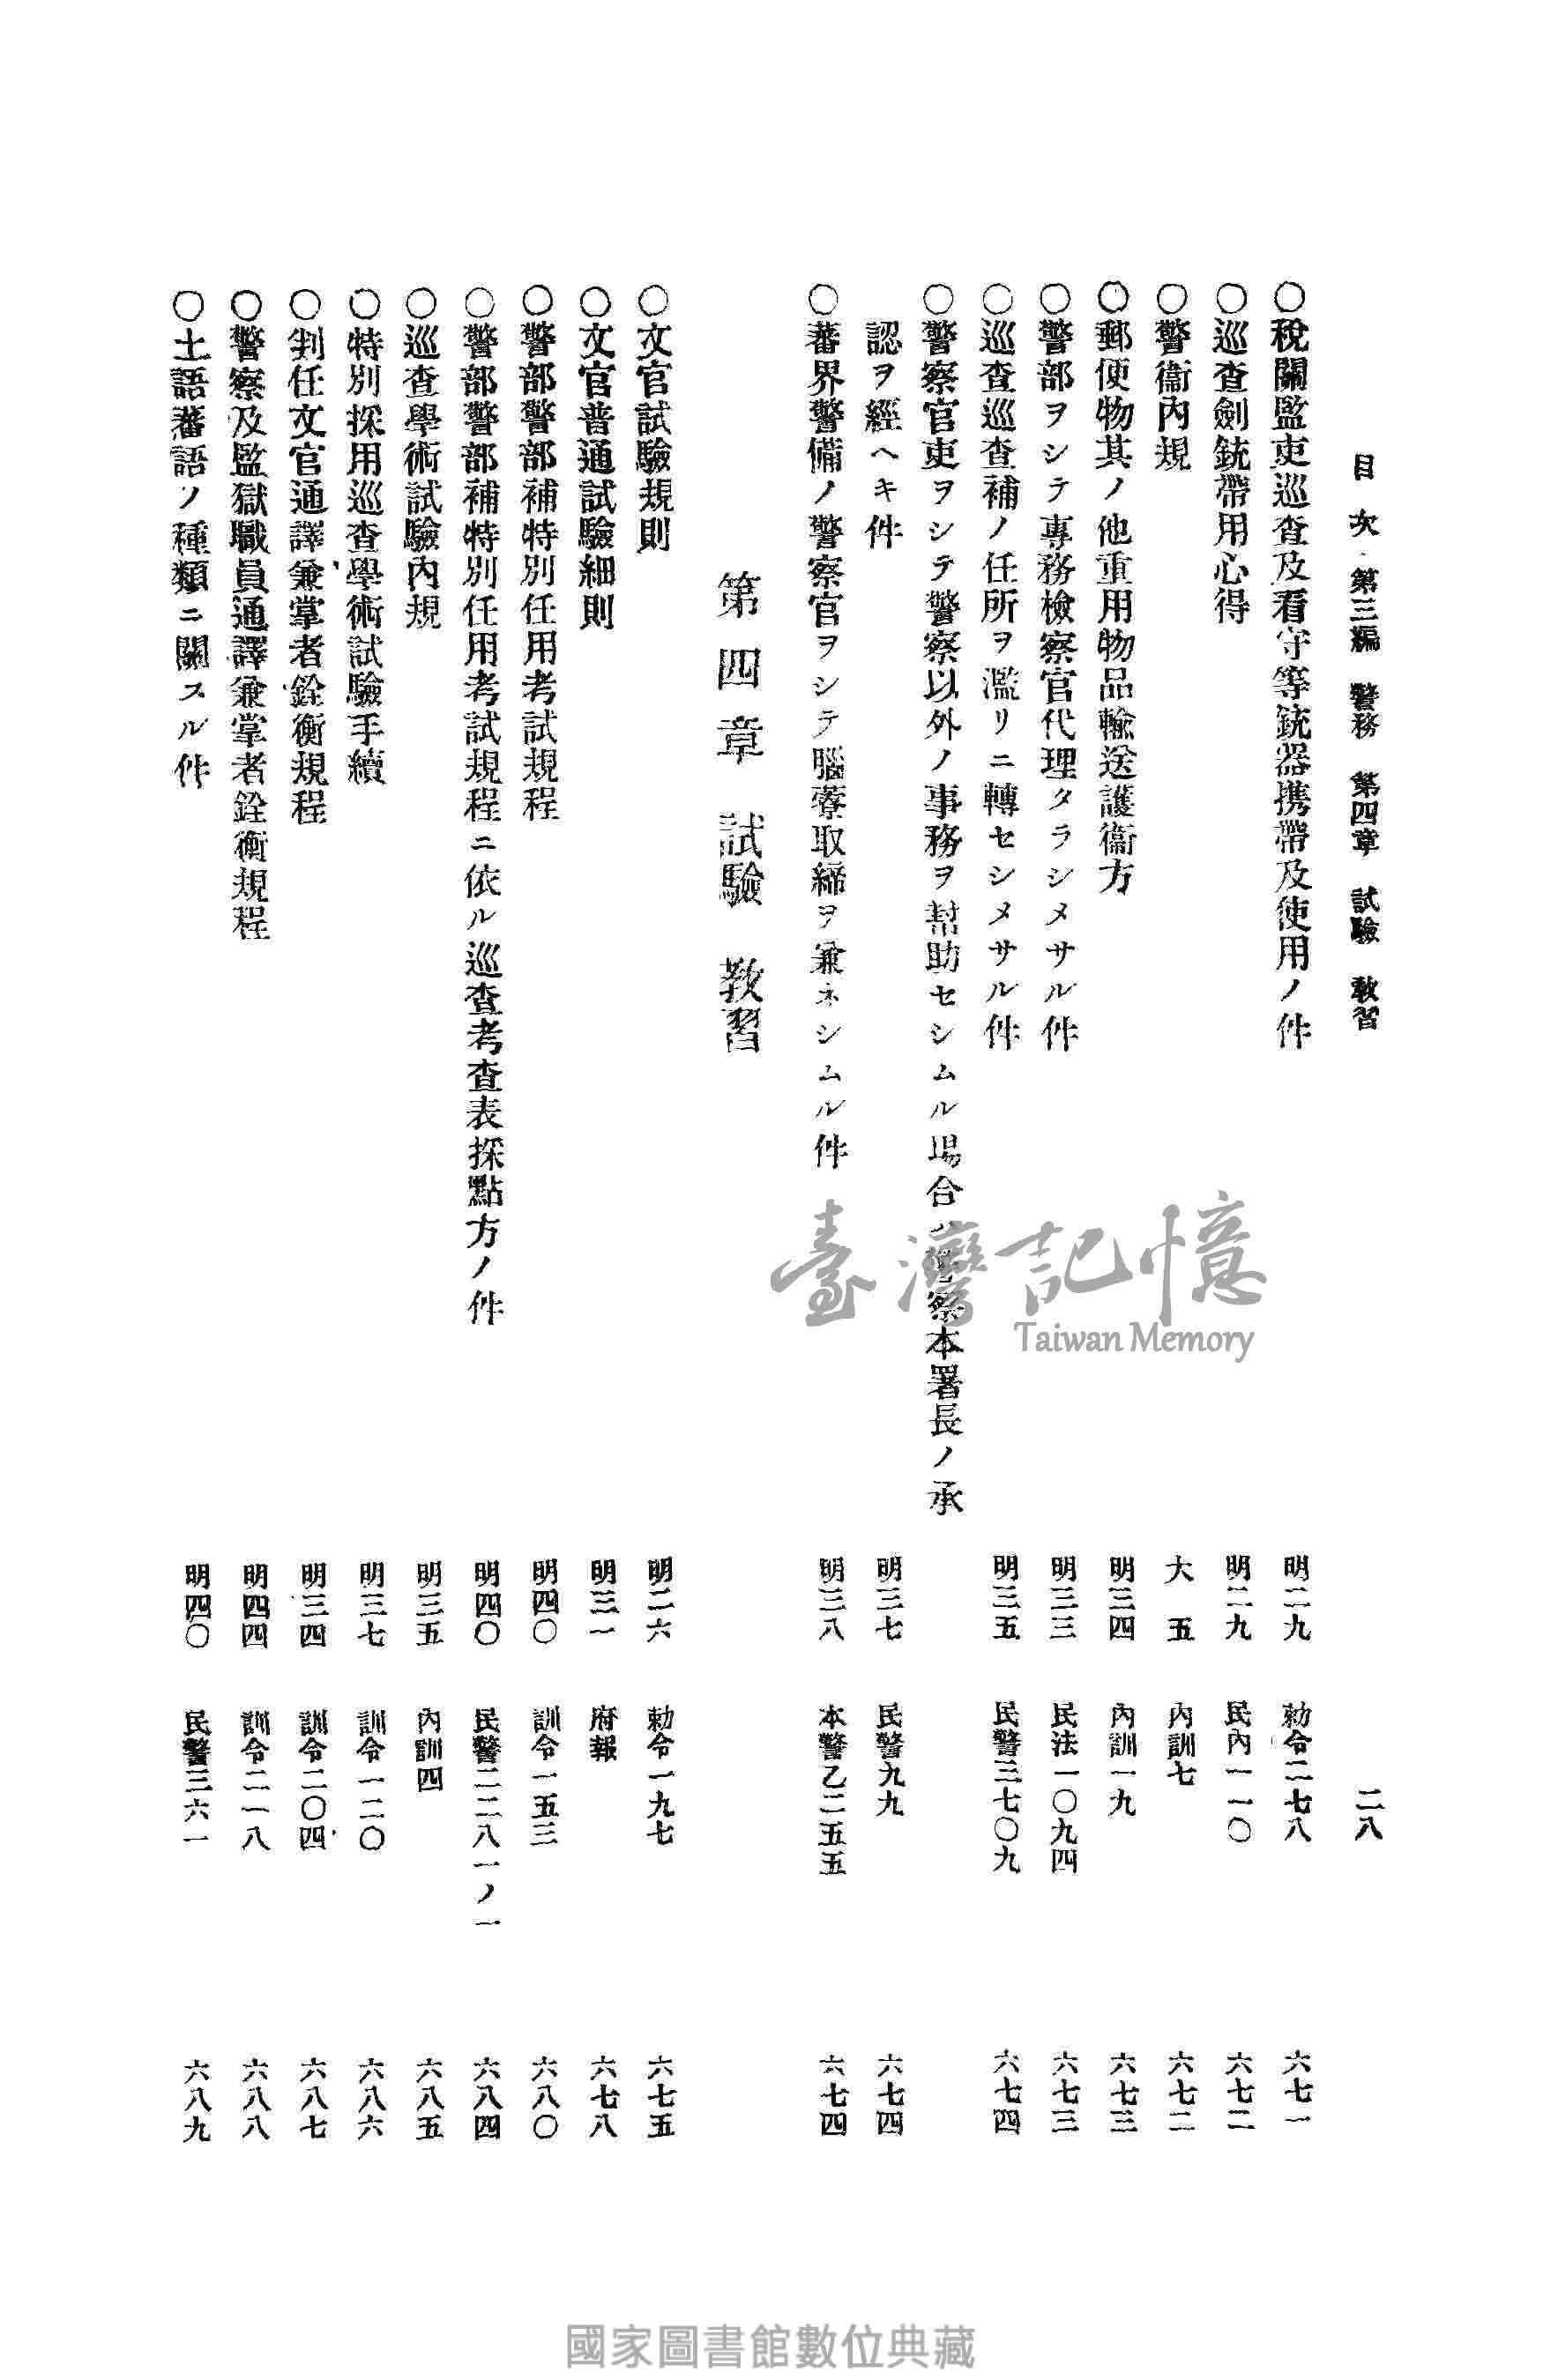 目次 第三編 警務 第四章 試驗 敎習 二八
〇稅關監吏巡査及看守等銃器携帶及使用ノ件 明二九 勅令二七八 六七一
〇巡査劍銃帶用心得 明二九 民內一一〇 六七二
〇警衞內規 大五 內訓七 六七二
〇郵便物其ノ他重用物品輸送護衞方 明三四 內訓一九 六七三
〇警部ヲシテ專務檢察官代理タラシメサル件 明三三 民法一〇九四 六七三
〇巡査巡査補ノ任所ヲ濫リニ轉セシメサル件 明三五 民警三七〇九 六七四
〇警察官吏ヲシテ警察以外ノ事務ヲ幇助セシムル場合ハ警察本署長ノ承
認ヲ經ヘキ件 明三七 民警九九 六七四
〇蕃界警備ノ警察官ヲシテ腦藔取締ヲ兼ネシムル件 明三八 本警乙二五五 六七四
第四章 試驗 敎習
〇文官試驗規則 明二六 勅令一九七 六七五
〇文官普通試驗細則 明三一 府報 六七八
〇警部警部補特別任用考試規程 明四〇 訓令一五三 六八〇
〇警部警部補特別任用考試規程ニ依ル巡査考查表採點方ノ件 明四〇 民警二二八一ノ一 六八四
〇巡査學術試驗內規 明三五 內訓四 六八五
〇特別採用巡査學術試驗手續 明三七 訓令一二〇 六八六
〇判任文官通譯兼掌者銓衡規程 明三四 訓令二〇四 六八七
〇警察及監獄職員通譯兼掌者銓衡規程 明四四 訓令二一八 六八八
〇土語蕃語ノ種類ニ關スル件 明四〇 民警三六一 六八九
臺灣記憶
Taiwan Memory
國家圖書館數位典藏